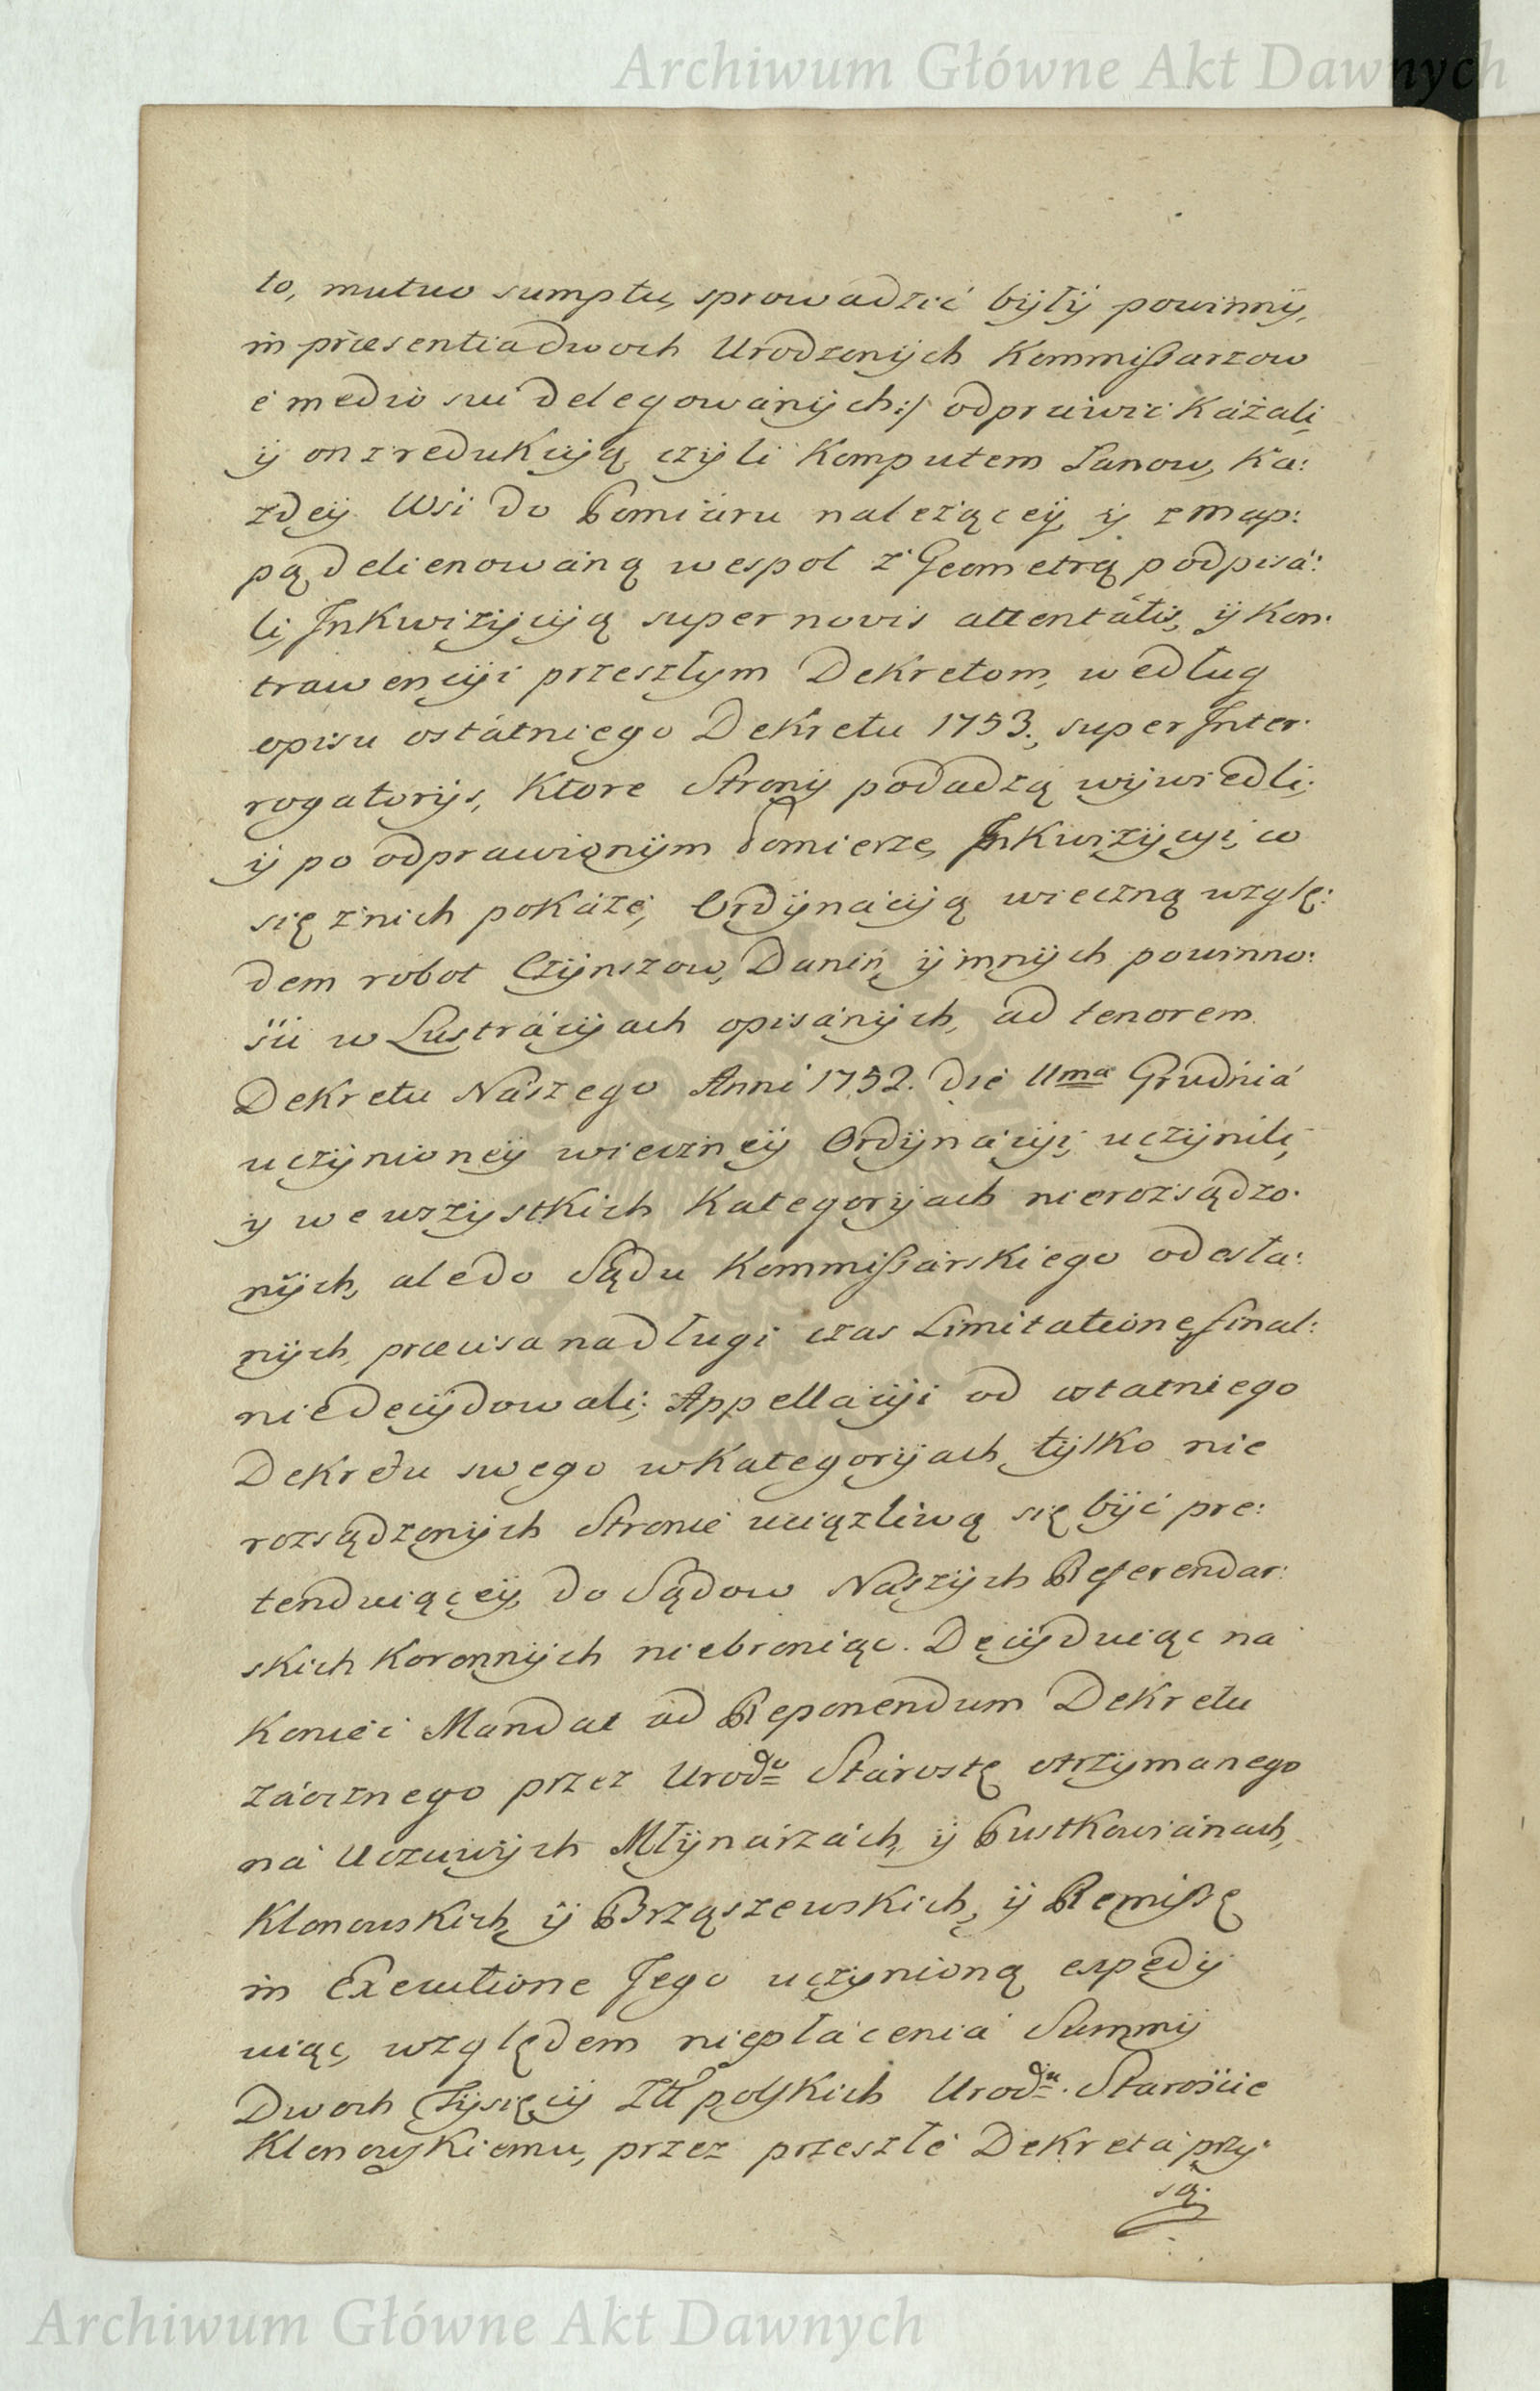 Archiwum Główne Akt Dawnych
to, mutuo sumptu, sprowadzić były powinny,
in præsentia dwoch Urodzonych Kommissarzow
é medio sui delegowanych:/ odprawić kazali,
ÿ on z redukcyią czyli Komputem Łanow, Ka:
zdey Wsi do Pomiaru nalezącey, ÿ z map:
pą delienowaną wespoł z Geometrą podpisa:
li, Jnkwizycyią super novis attentatis, ÿ Kon:
trawencyi przeszłym Dekretom, według
opisu ostatniego Dekretu 1753., super Jnter:
rogatorÿs, Ktore Strony podadzą wywiedli,
ÿ po odprawionym Pomierze, Jnkwizycyi, co
się z nich pokaze, Ordynacyią wieczną wzglę:
dem robot Czynszow, Danin, ÿ innych powinno:
ści w Lustracyiach opisanych, ad tenorem
Dekretu Naszego Anni 1752. die 11ma Grudnia
uczynioney wieczney Ordynacyi, uczynili,
y we wszystkich Kategoryiach nierozsądzo:
nych, ale do Sądu Kommissarskiego odesła:
nych, præcisa na długi czas Limitatione, final:
nie decydowali; Appellacyi od ostatniego
Dekretu swego w Kategoryiach tylko nie
rozsądzonych Stronie uciązliwą się być pre:
tenduiącey, do Sądow Naszych Referendar:
skich Koronnych niebroniąc. Decyduiąc na
Koniec Mandat ad Reponendum Dekretu
zaocznego przez Urodo Starostę otrzymanego
na Uczciwych Młynarzach, ÿ Pustkowianach,
Klonowskich, ÿ Brząszewskich, ÿ Remissę
in Executione Jego uczynioną expedy
uiąc, względem niepłacenia Summy
Dwoch Tysięcy Złł polskich Urodu. Starości​e
Klonowskiemu, przez przeszłe Dekreta przy
są:
Archiwum Główne Akt Dawnych